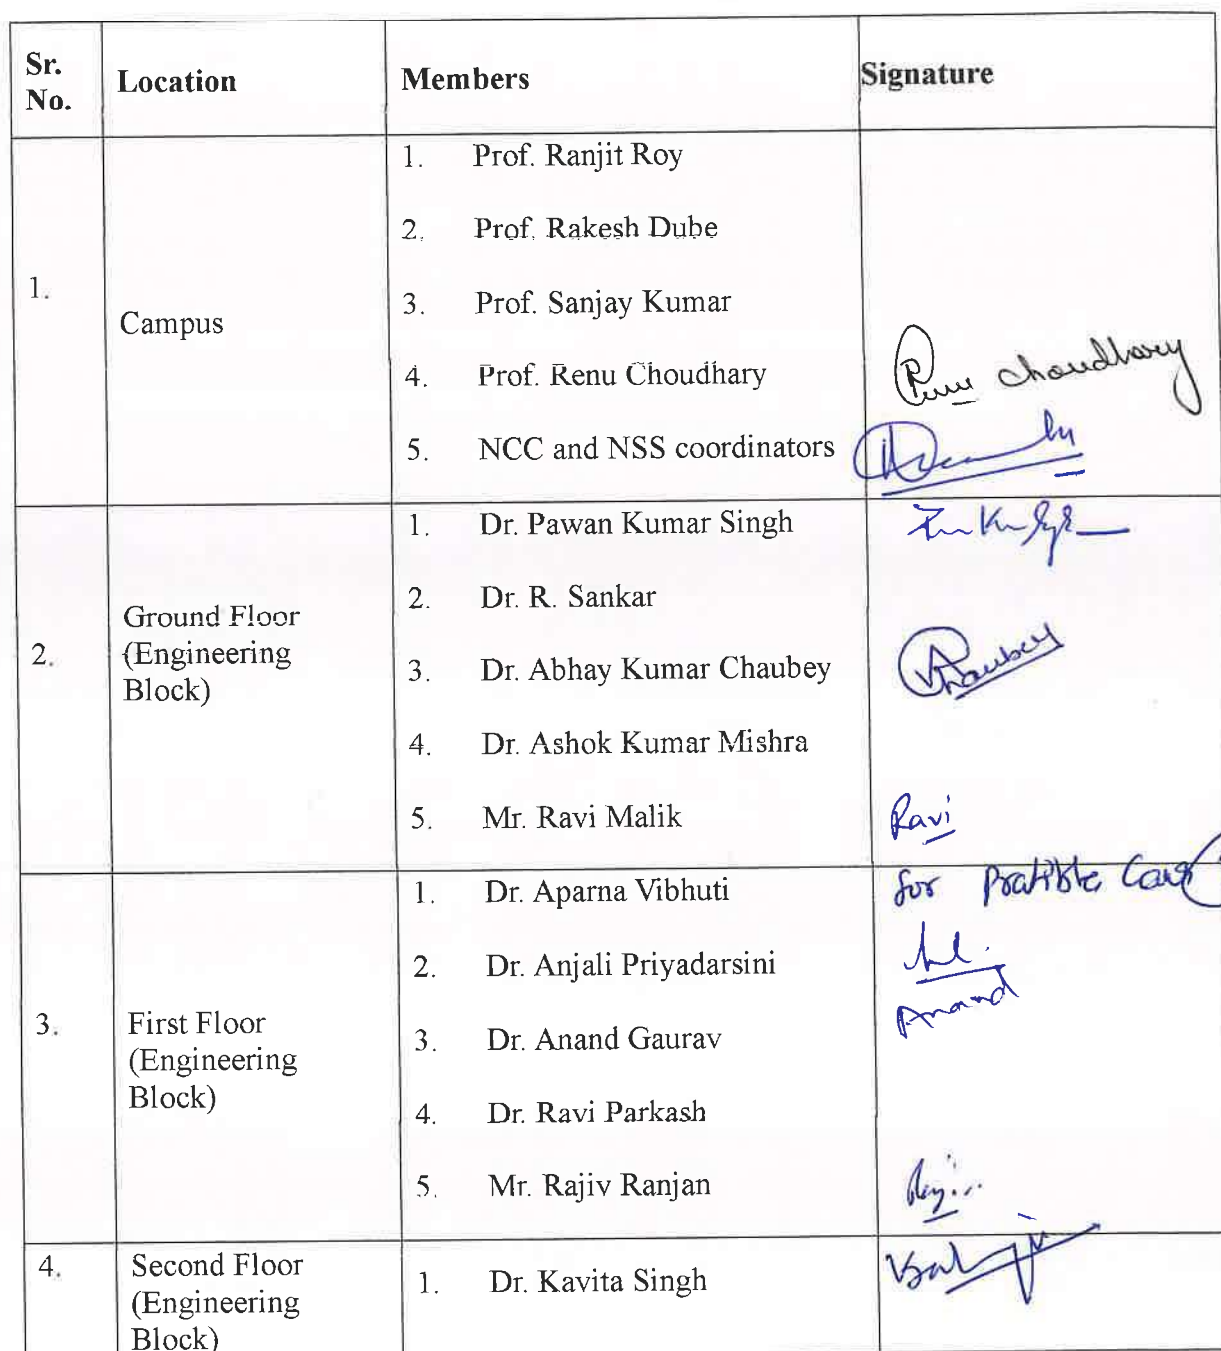 Sr. No.
Location
Members
Signature
1.
Campus
1. Prof. Ranjit Roy
2. Prof. Rakesh Dube
3. Prof. Sanjay Kumar
4. Prof. Renu Choudhary
Renu Choudhary
5. NCC and NSS coordinators
2.
Ground Floor
(Engineering
Block)
1. Dr. Pawan Kumar Singh
2. Dr. R. Sankar
3. Dr. Abhay Kumar Chaubey
Chaubey
4. Dr. Ashok Kumar Mishra
5. Mr. Ravi Malik
Ravi
3.
First Floor
(Engineering
Block)
1. Dr. Aparna Vibhuti
for
2. Dr. Anjali Priyadarsini
3. Dr. Anand Gaurav
Anand
4. Dr. Ravi Parkash
5. Mr. Rajiv Ranjan
4.
Second Floor
(Engineering
Block)
1. Dr. Kavita Singh